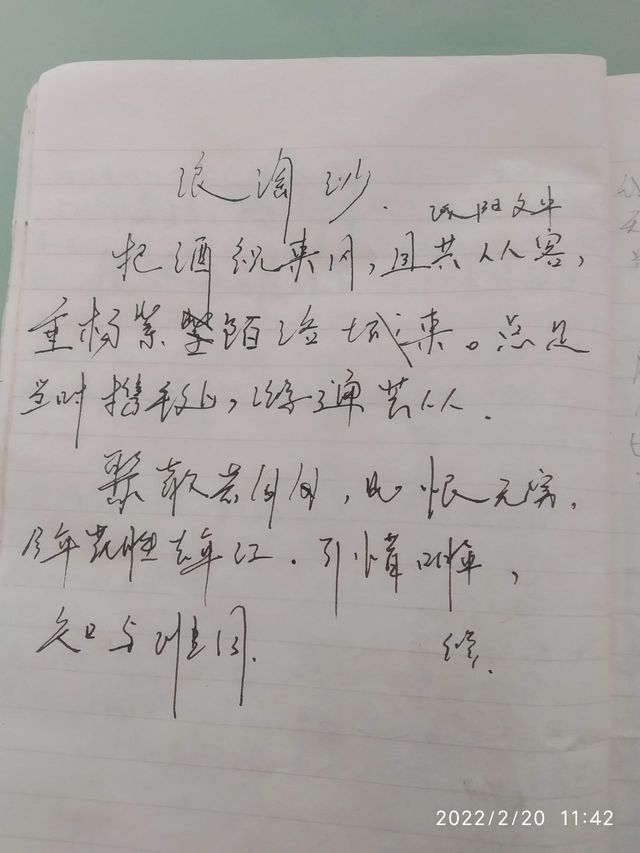 浪淘沙.
欧阳
把酒祝东风,且共从容,
垂杨紫陌洛城东。总是
当时携手处,游遍芳丛.
聚散苦匆匆,此恨无穷,
今年花胜去年红.
知与谁同.
2022/2/20 11:42